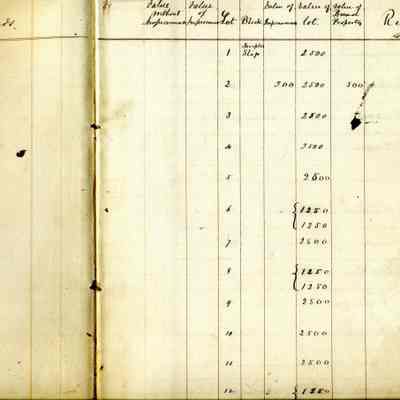 Value without Improvements Value of Improvements Lot Block Value of Improvements Value of lot. Value of Personal Property Re
1 Slip 2500
2 300 2500 300
3 2500
4 2500
5 2500
6 { 1250
1250
7 2500
8 { 1250
1250
9 2500
10 2500
11 2500
12 { 1250